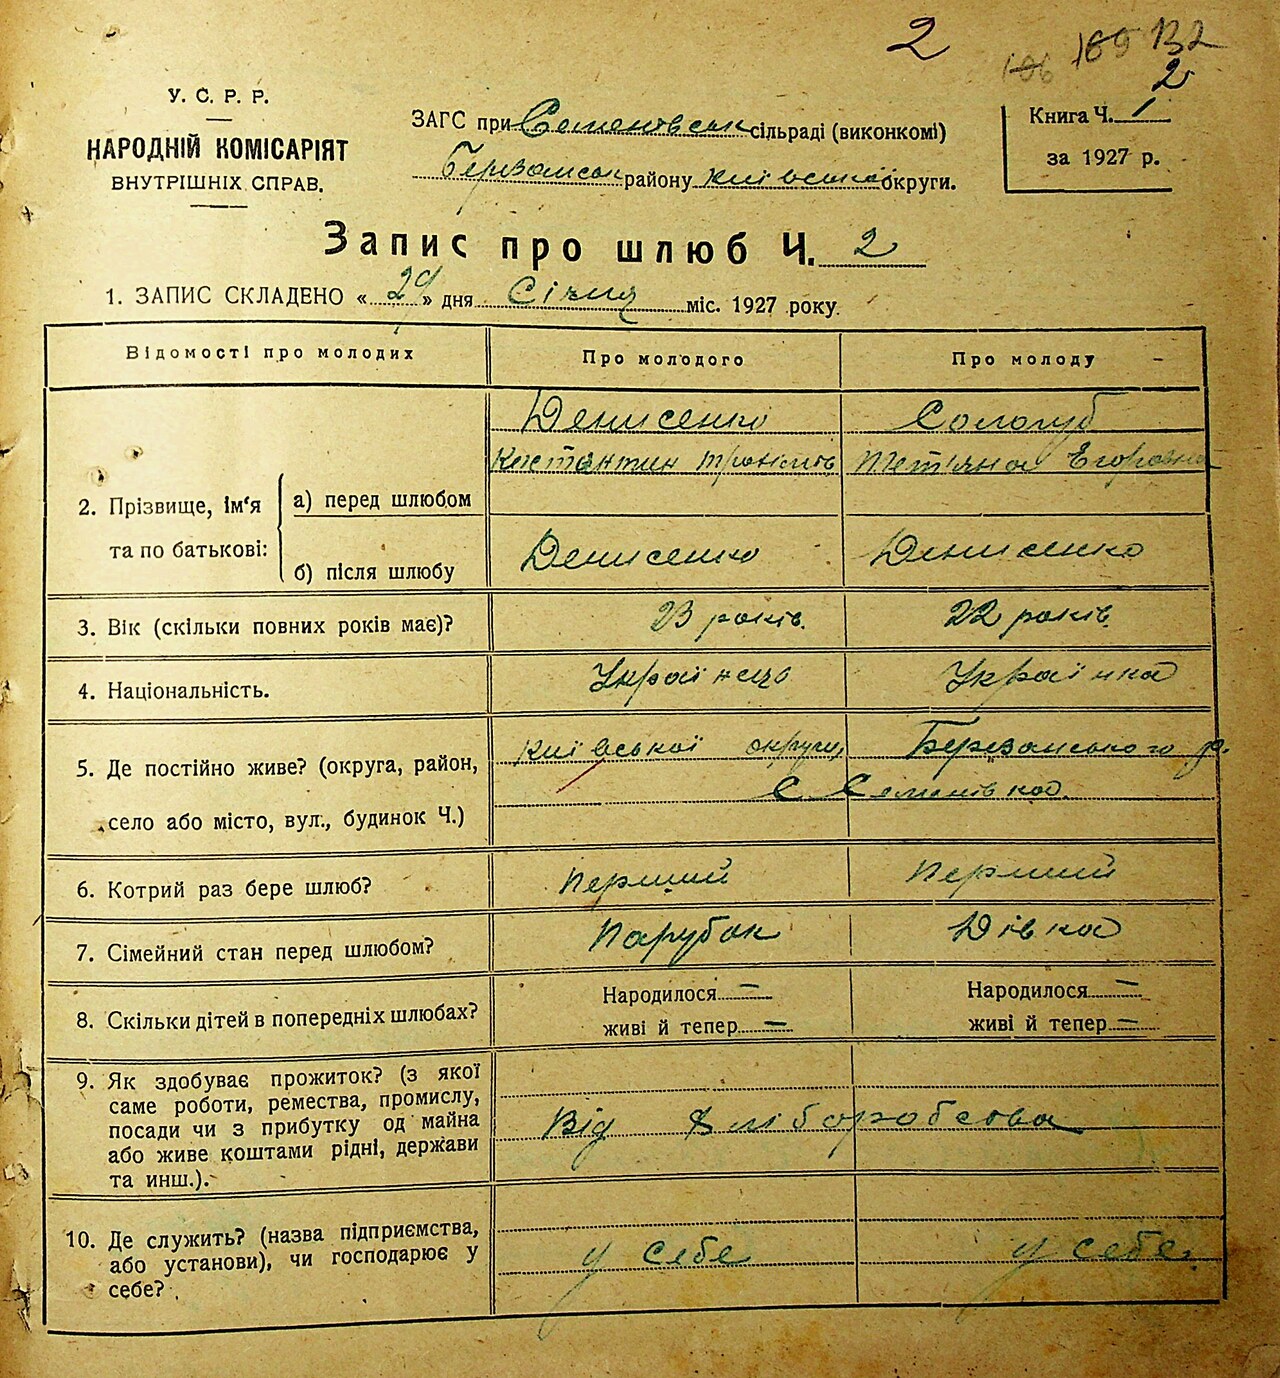 2
169 132
2
У. С. Р. Р.
НАРОДНІЙ КОМІСАРІЯТ
ВНУТРІШНІХ СПРАВ.
ЗАГС при Семеновськ сільраді (виконкомі)
Березанськ району Київської округи.
Книга Ч. 1
за 1927 р.
Запис про шлюб Ч. 2
1. ЗАПИС СКЛАДЕНО « 29 » дня Січня міс. 1927 року
Відомості про молодих
Про молодого
Про молоду
2. Прізвище, ім'я та по батькові:
а) перед шлюбом
Денисенко
Костянтин
Сологуб
Тетяна Егоровна
б) після шлюбу
Денисенко
Денисенко
3. Вік (скільки повних років має)?
23 років.
22 років.
4. Національність.
Українець
Українка
5. Де постійно живе? (округа, район,
село або місто, вул., будинок Ч.)
Київської округи, Березанського р.
С Семенівка
6. Котрий раз бере шлюб?
Перший
Перший
7. Сімейний стан перед шлюбом?
Парубок
Дівка
8. Скільки дітей в попередніх шлюбах?
Народилося —
живі й тепер —
Народилося —
живі й тепер —
9. Як здобуває прожиток? (з якої
саме роботи, ремества, промислу,
посади чи з прибутку од майна
або живе коштами рідні, держави
та инш.).
Від хліборобства
10. Де служить? (назва підприємства,
або установи), чи господарює у
себе?
у себе
у себе.